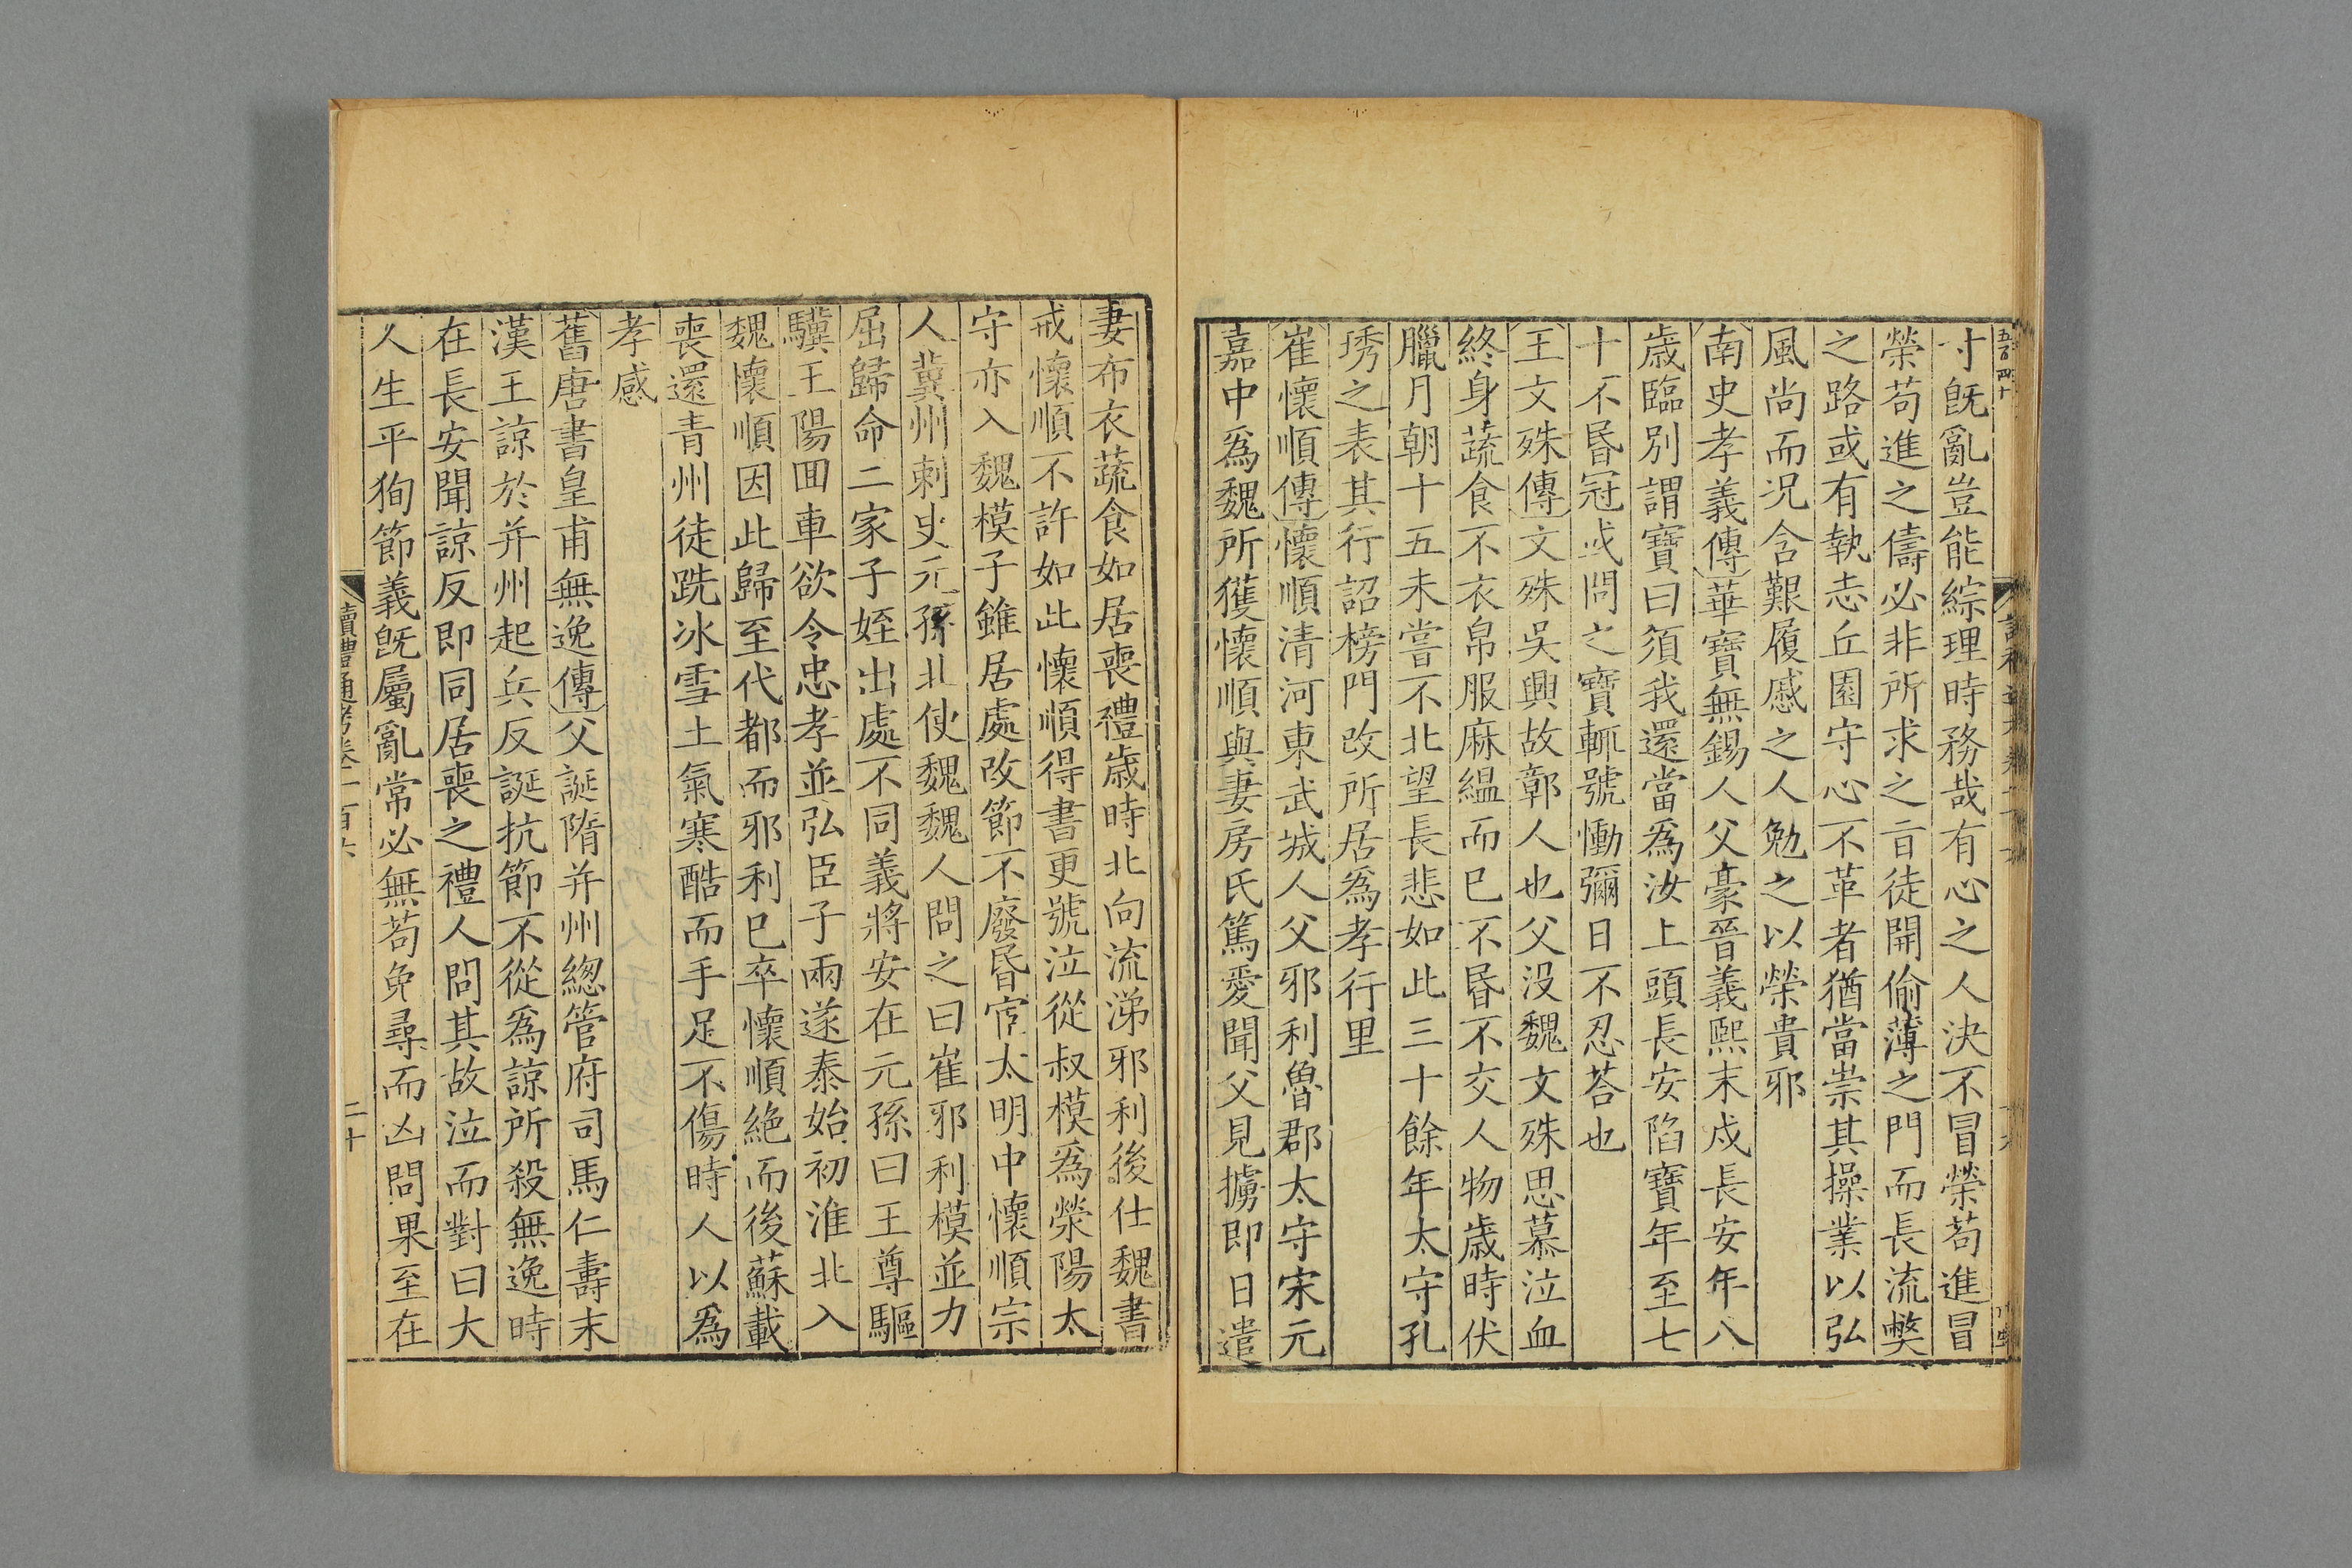 寸旣亂豈能綜理時務哉有心之人決不冒榮苟進冒
榮苟進之儔必非所求之旨徒開偷薄之門而長流獘
之路或有執志丘園守心不革者猶當崇其操業以弘
風尚而况含艱履慼之人勉之以榮貴邪
南史孝義傳華寶無錫人父豪晉義熙末戍長安年八
歲臨別謂寶曰須我還當爲汝上頭長安陷寶年至七
十不昏冠或問之寶輒號慟彌日不忍荅也
王文殊傳文殊吳興故鄣人也父没魏文殊思慕泣血
終身蔬食不衣帛服麻緼而已不昏不交人物歲時伏
臘月朝十五未嘗不北望長悲如此三十餘年太守孔
琇之表其行詔榜門改所居爲孝行里
崔懷順傳懷順清河東武城人父邪利魯郡太守宋元
嘉中爲魏所獲懷順與妻房氏篤愛聞父見擄即日遣
妻布衣蔬食如居喪禮歲時北向流涕邪利後仕魏書
戒懷順不許如此懷順得書更號泣從叔模爲滎陽太
守亦入魏模子雖居處改節不廢昏宦太明中懷順宗
人冀州刺史元孫北使魏魏人問之曰崔邪利模並力
屈歸命二家子姪出處不同義將安在元孫曰王尊驅
驥王陽回車欲令忠孝並弘臣子兩遂泰始初淮北入
魏懷順因此歸至代都而邪利已卒懷順絶而後蘇載
喪還青州徒跣冰雪土氣寒酷而手足不傷時人以爲
孝感
舊唐書皇甫無逸傳父誕隋并州總管府司馬仁壽末
漢王諒於并州起兵反誕抗節不從爲諒所殺無逸時
在長安聞諒反即同居喪之禮人問其故泣而對曰大
人生平狥節義旣屬亂常必無苟免尋而凶問果至在
讀禮通考卷一百六
二十